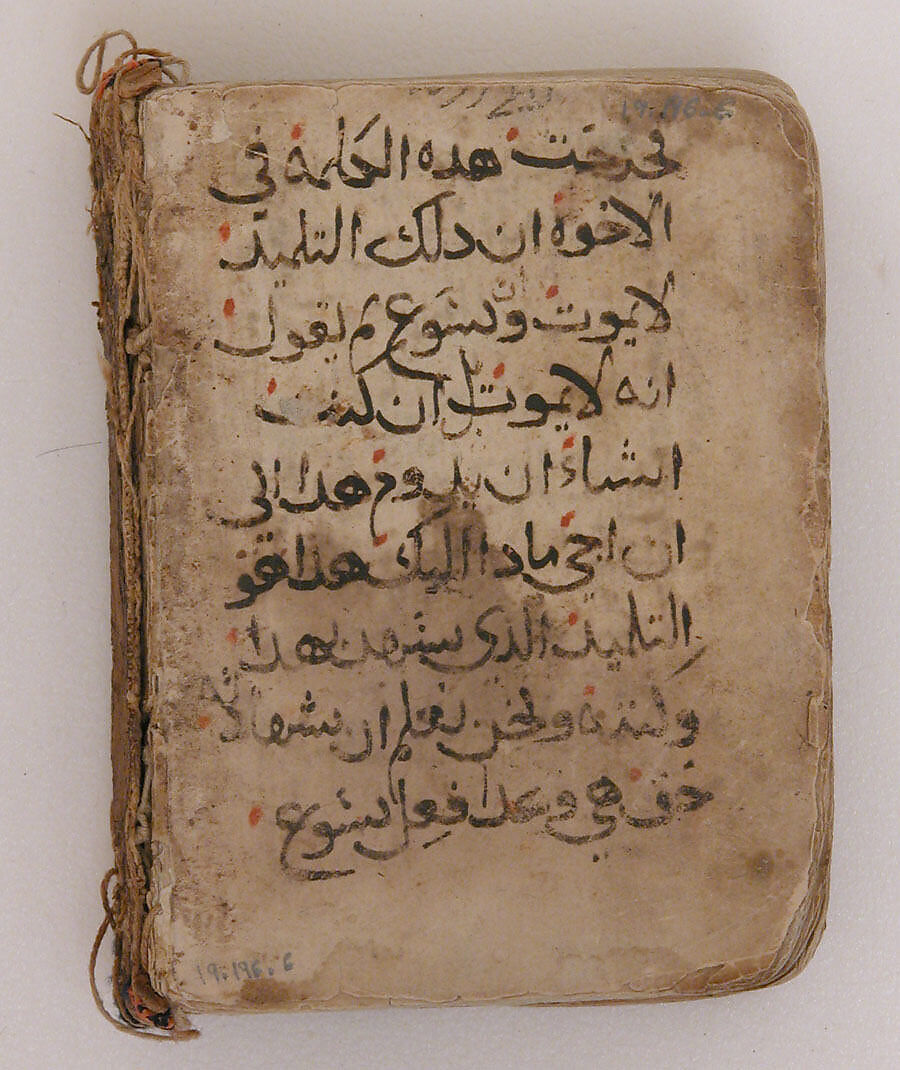 19.196.6
فخرجت هذه الكلمة في
الاخوة ان ذلك التلميذ
لا يموت وان يسوع لم يقول
انه لا يموت بل ان كنت
انشاء ان يدوم هذا الى
ان اجي ماذا اليك هذا هو
التلميذ الذي يشهد بهذا
وكتبه ونحن نعلم ان شهادته
حق هي وعدا فعل يسوع
19.196.6